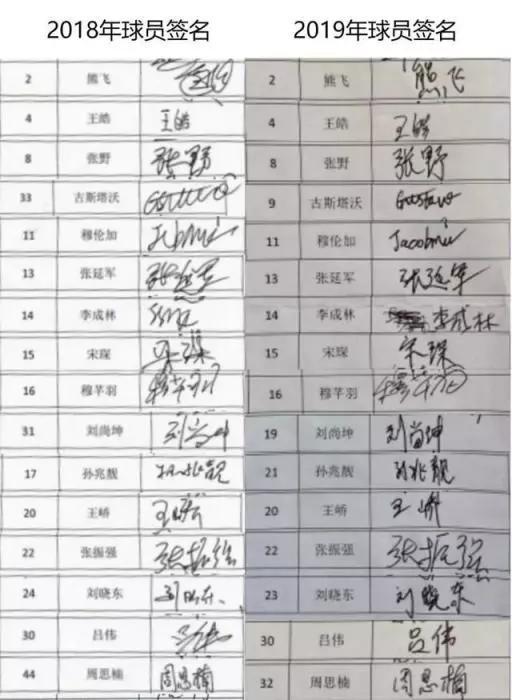 2018年球员签名 2019年球员签名
2 熊飞 2 熊飞 熊飞
4 王皓 王皓 4 王皓 王皓
8 张野 张野 8 张野 张野
33 古斯塔沃 9 古斯塔沃 Gustavo
11 穆伦加 11 穆伦加
13 张延军 张延军 13 张延军 张延军
14 李成林 14 李成林 李成林
15 宋琛 宋琛 15 宋琛 宋琛
16 穆芊羽 16 穆芊羽
31 刘尚坤 刘尚坤 19 刘尚坤 刘尚坤
17 孙兆靓 孙兆靓 21 孙兆靓 孙兆靓
20 王峤 20 王峤 王峤
22 张振强 张振强 22 张振强 张振强
24 刘晓东 23 刘晓东 刘晓东
30 吕伟 30 吕伟 吕伟
44 周思楠 周思楠 32 周思楠 周思楠